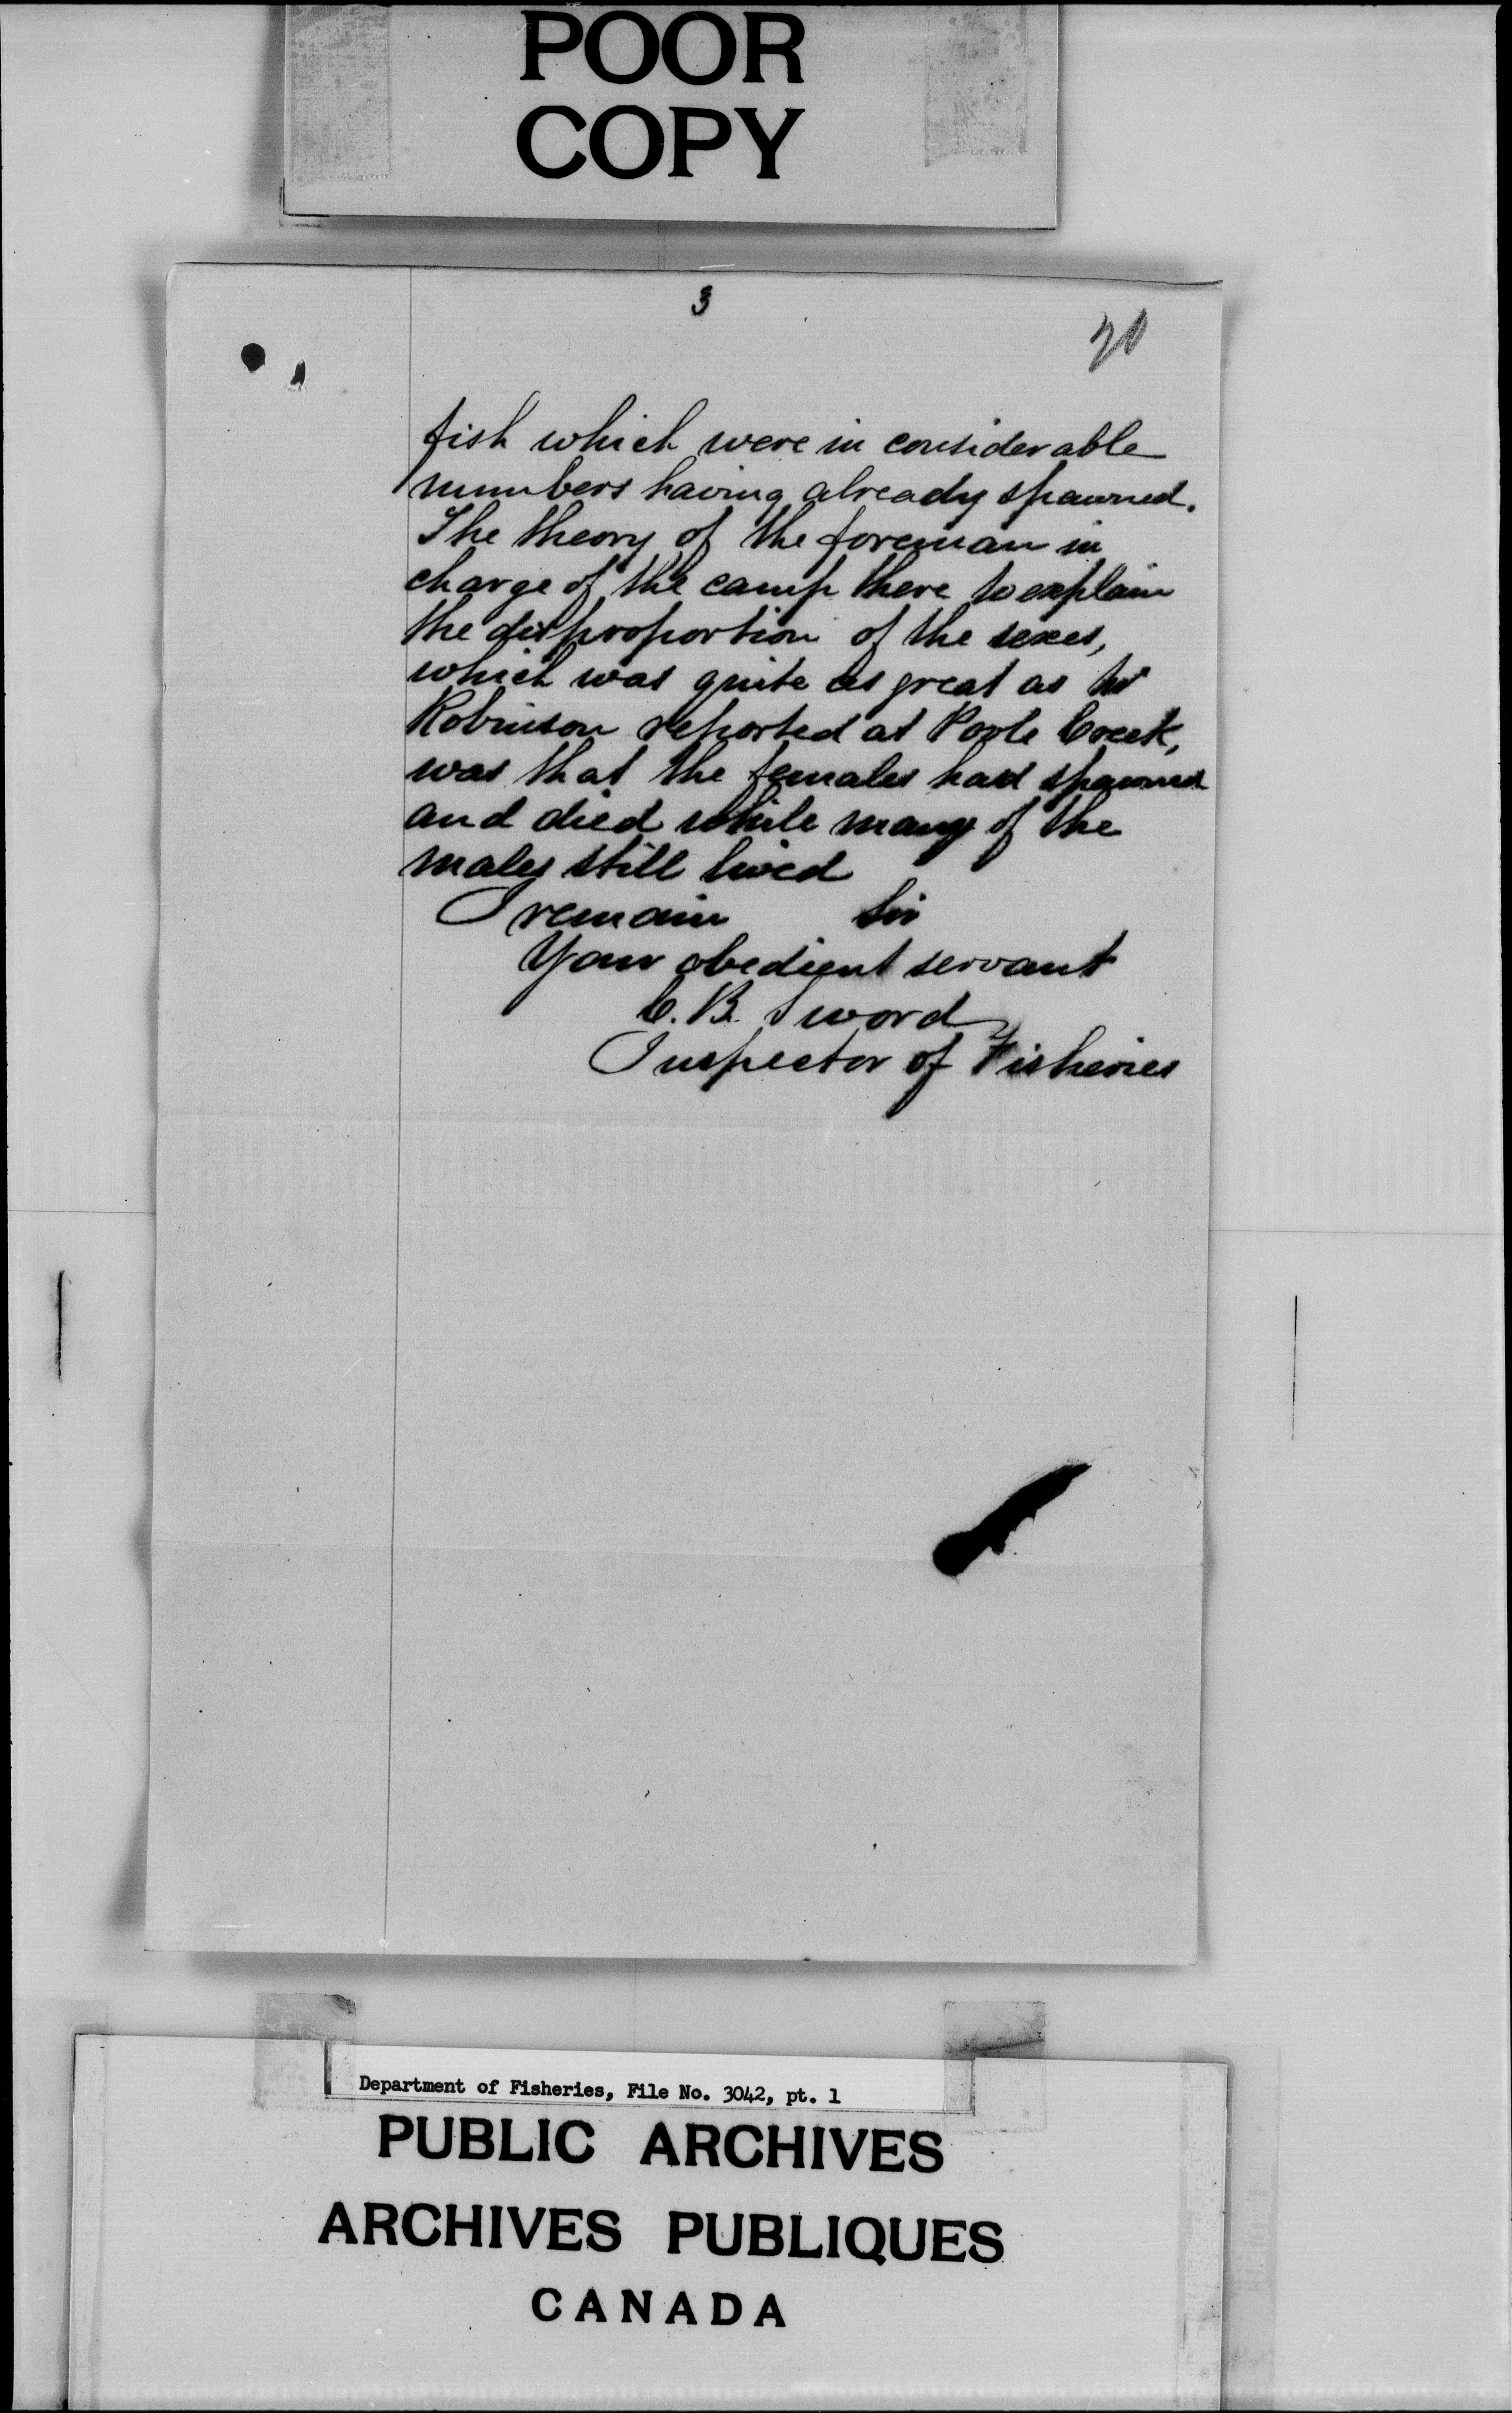 POOR
COPY
3
20
fish which were in considerable
numbers having already spawned.
The theory of the foreman in
charge of the camp there to explain
the disproportion of the sexes,
which was quite as great as Mr
Robinson reported at Poole Creek,
was that the females had spawned
and died while many of the
males still lived
I remain Sir
Your obedient servant
C. B. Sword
Inspector of Fisheries
Department of Fisheries, File No. 3042, pt. 1
PUBLIC ARCHIVES
ARCHIVES PUBLIQUES
CANADA